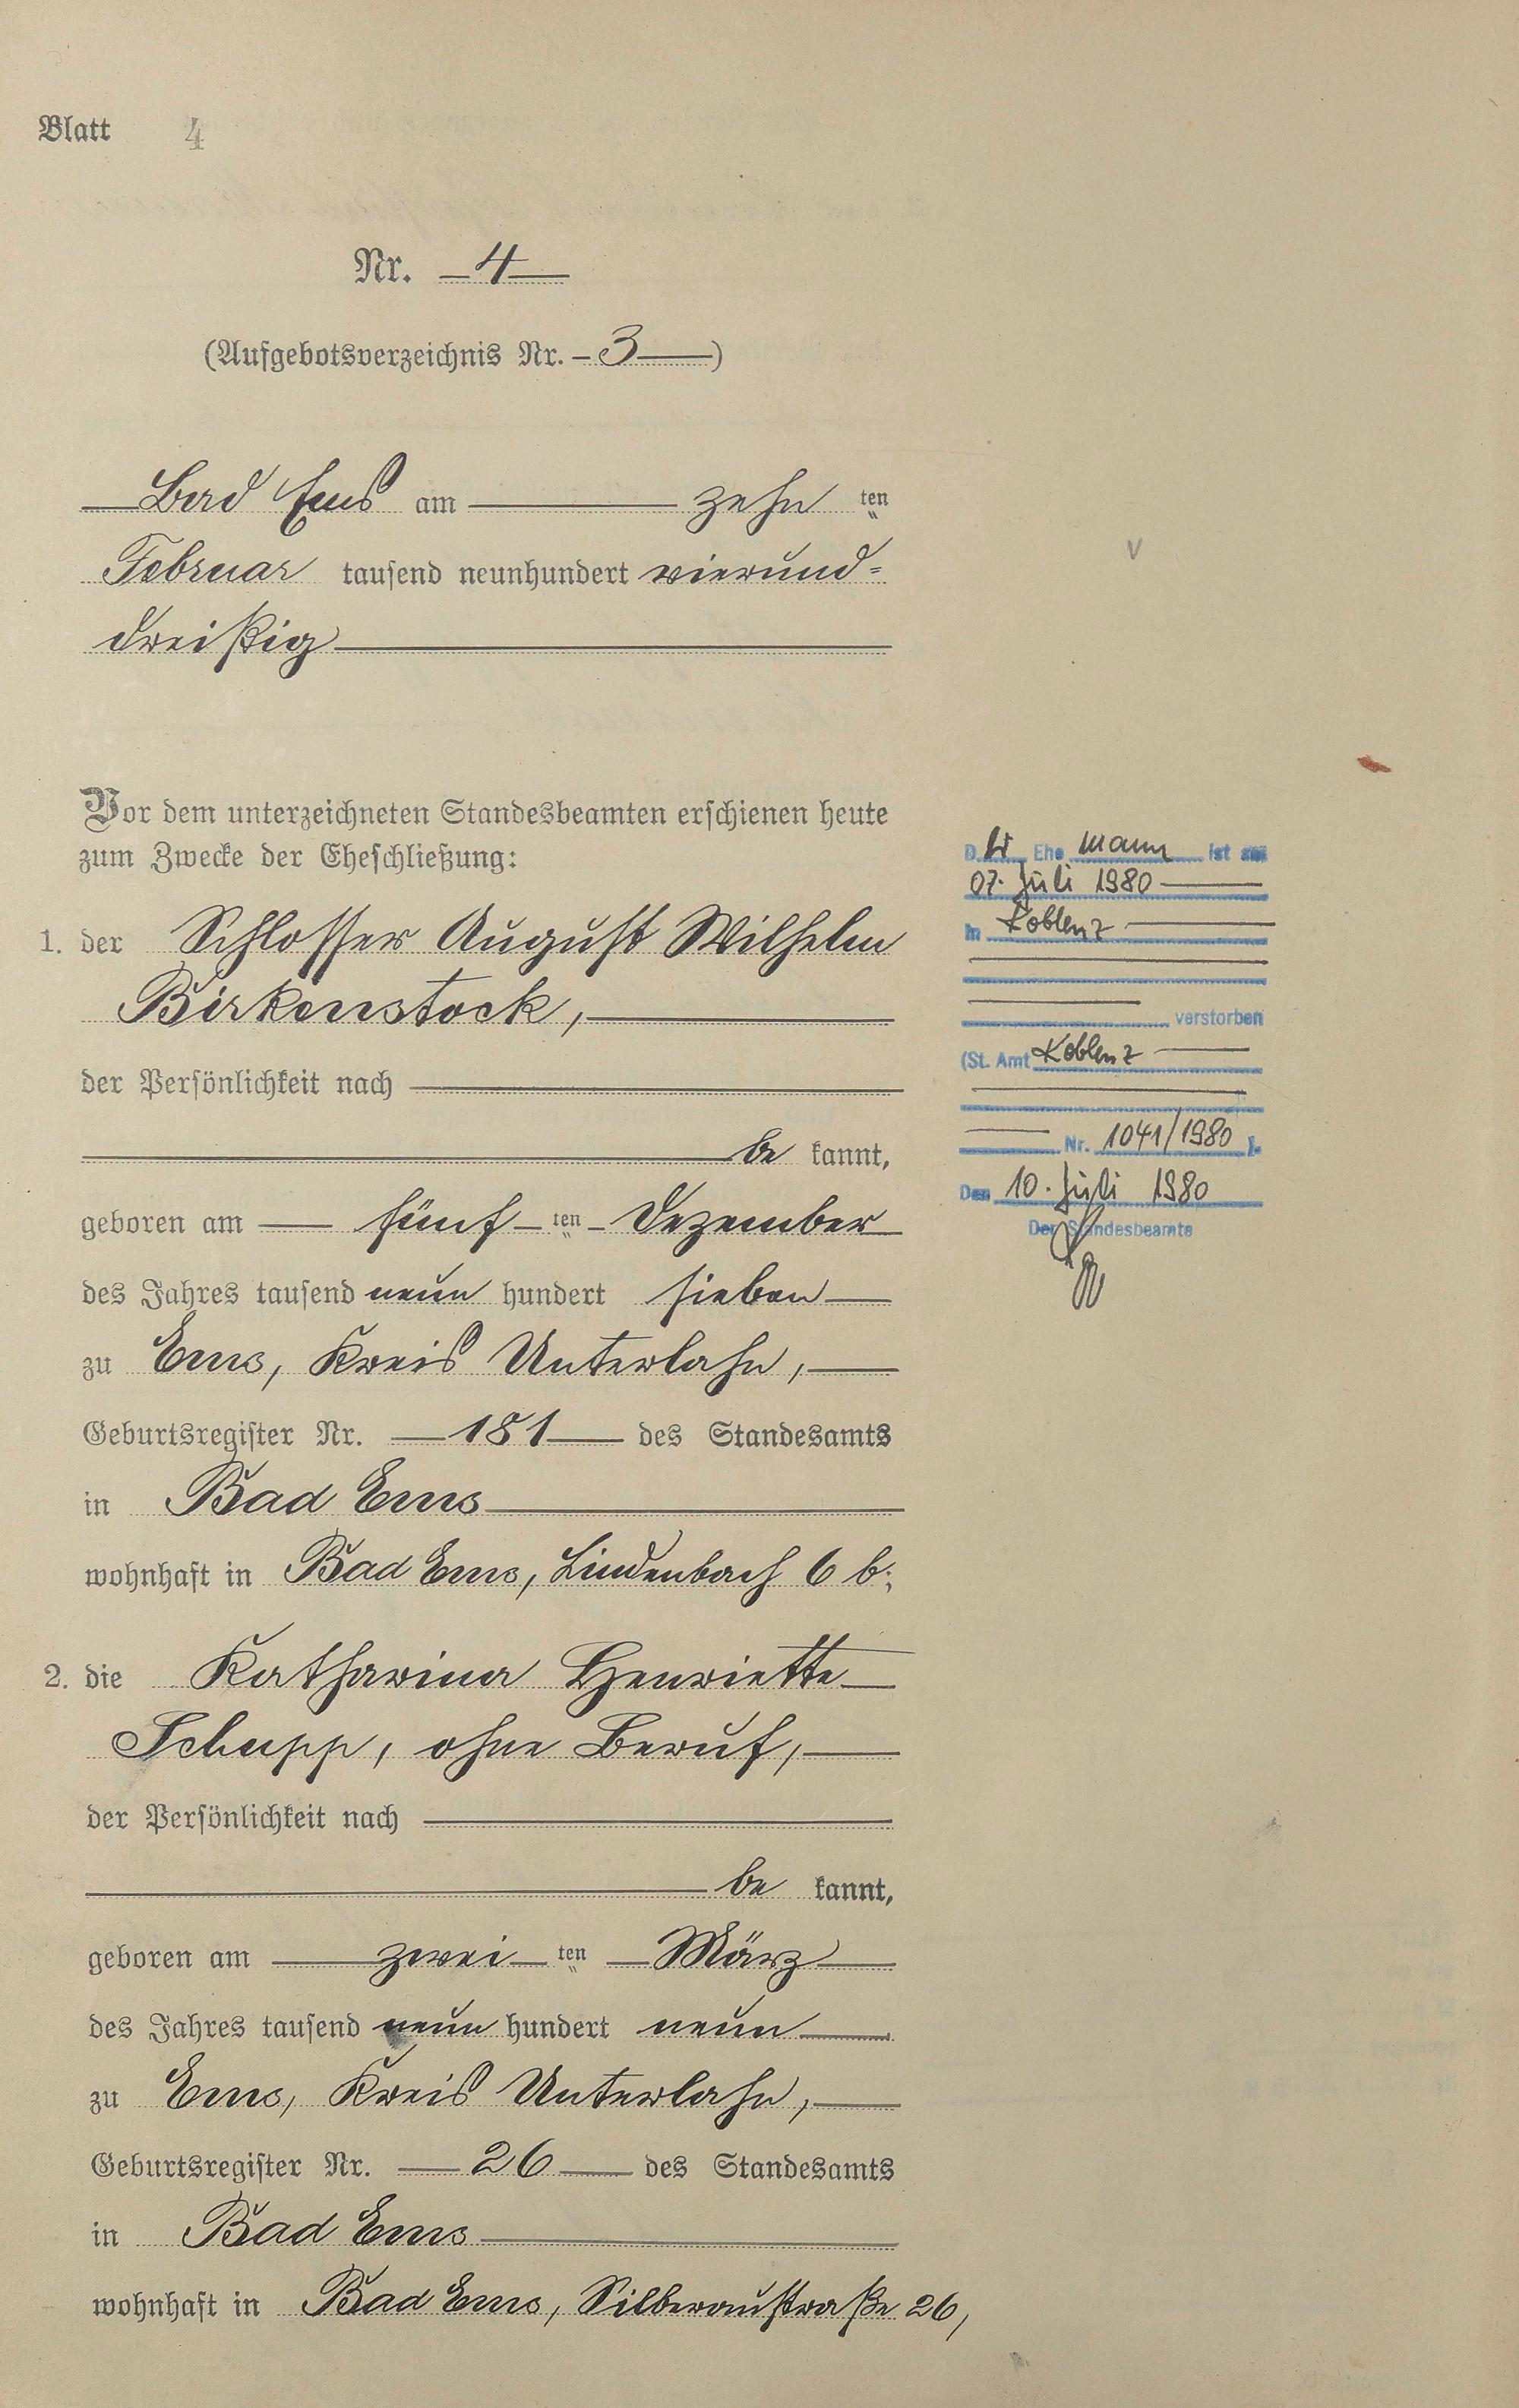 Blatt 4
Nr. 4
(Aufgebotsverzeichnis Nr. 3)
Bad Ems am zehn ten
Februar tausend neunhundert vierund-
dreißig
Vor dem unterzeichneten Standesbeamten erschienen heute
zum Zwecke der Eheschließung:
1. der Schlosser August Wilhelm
Birkenstock,
der Persönlichkeit nach
be kannt,
geboren am fünf ten Dezember
des Jahres tausend neun hundert sieben
zu Ems, Kreis Unterlahn,
Geburtsregister Nr. 181 des Standesamts
in Bad Ems
wohnhaft in Bad Ems, Lindenbach 6 b;
2. die Katharina Henriette
Schupp, ohne Beruf,
der Persönlichkeit nach
be kannt,
geboren am zwei ten März
des Jahres tausend neun hundert neun
zu Ems, Kreis Unterlahn,
Geburtsregister Nr. 26 des Standesamts
in Bad Ems
wohnhaft in Bad Ems, Silberaustraße 26,
D er Ehe mann ist am
07. Juli 1980
in Koblenz
verstorben
(St. Amt Koblenz
Nr. 1041/1980 ).
Den 10. Juli 1980
Der Standesbeamte